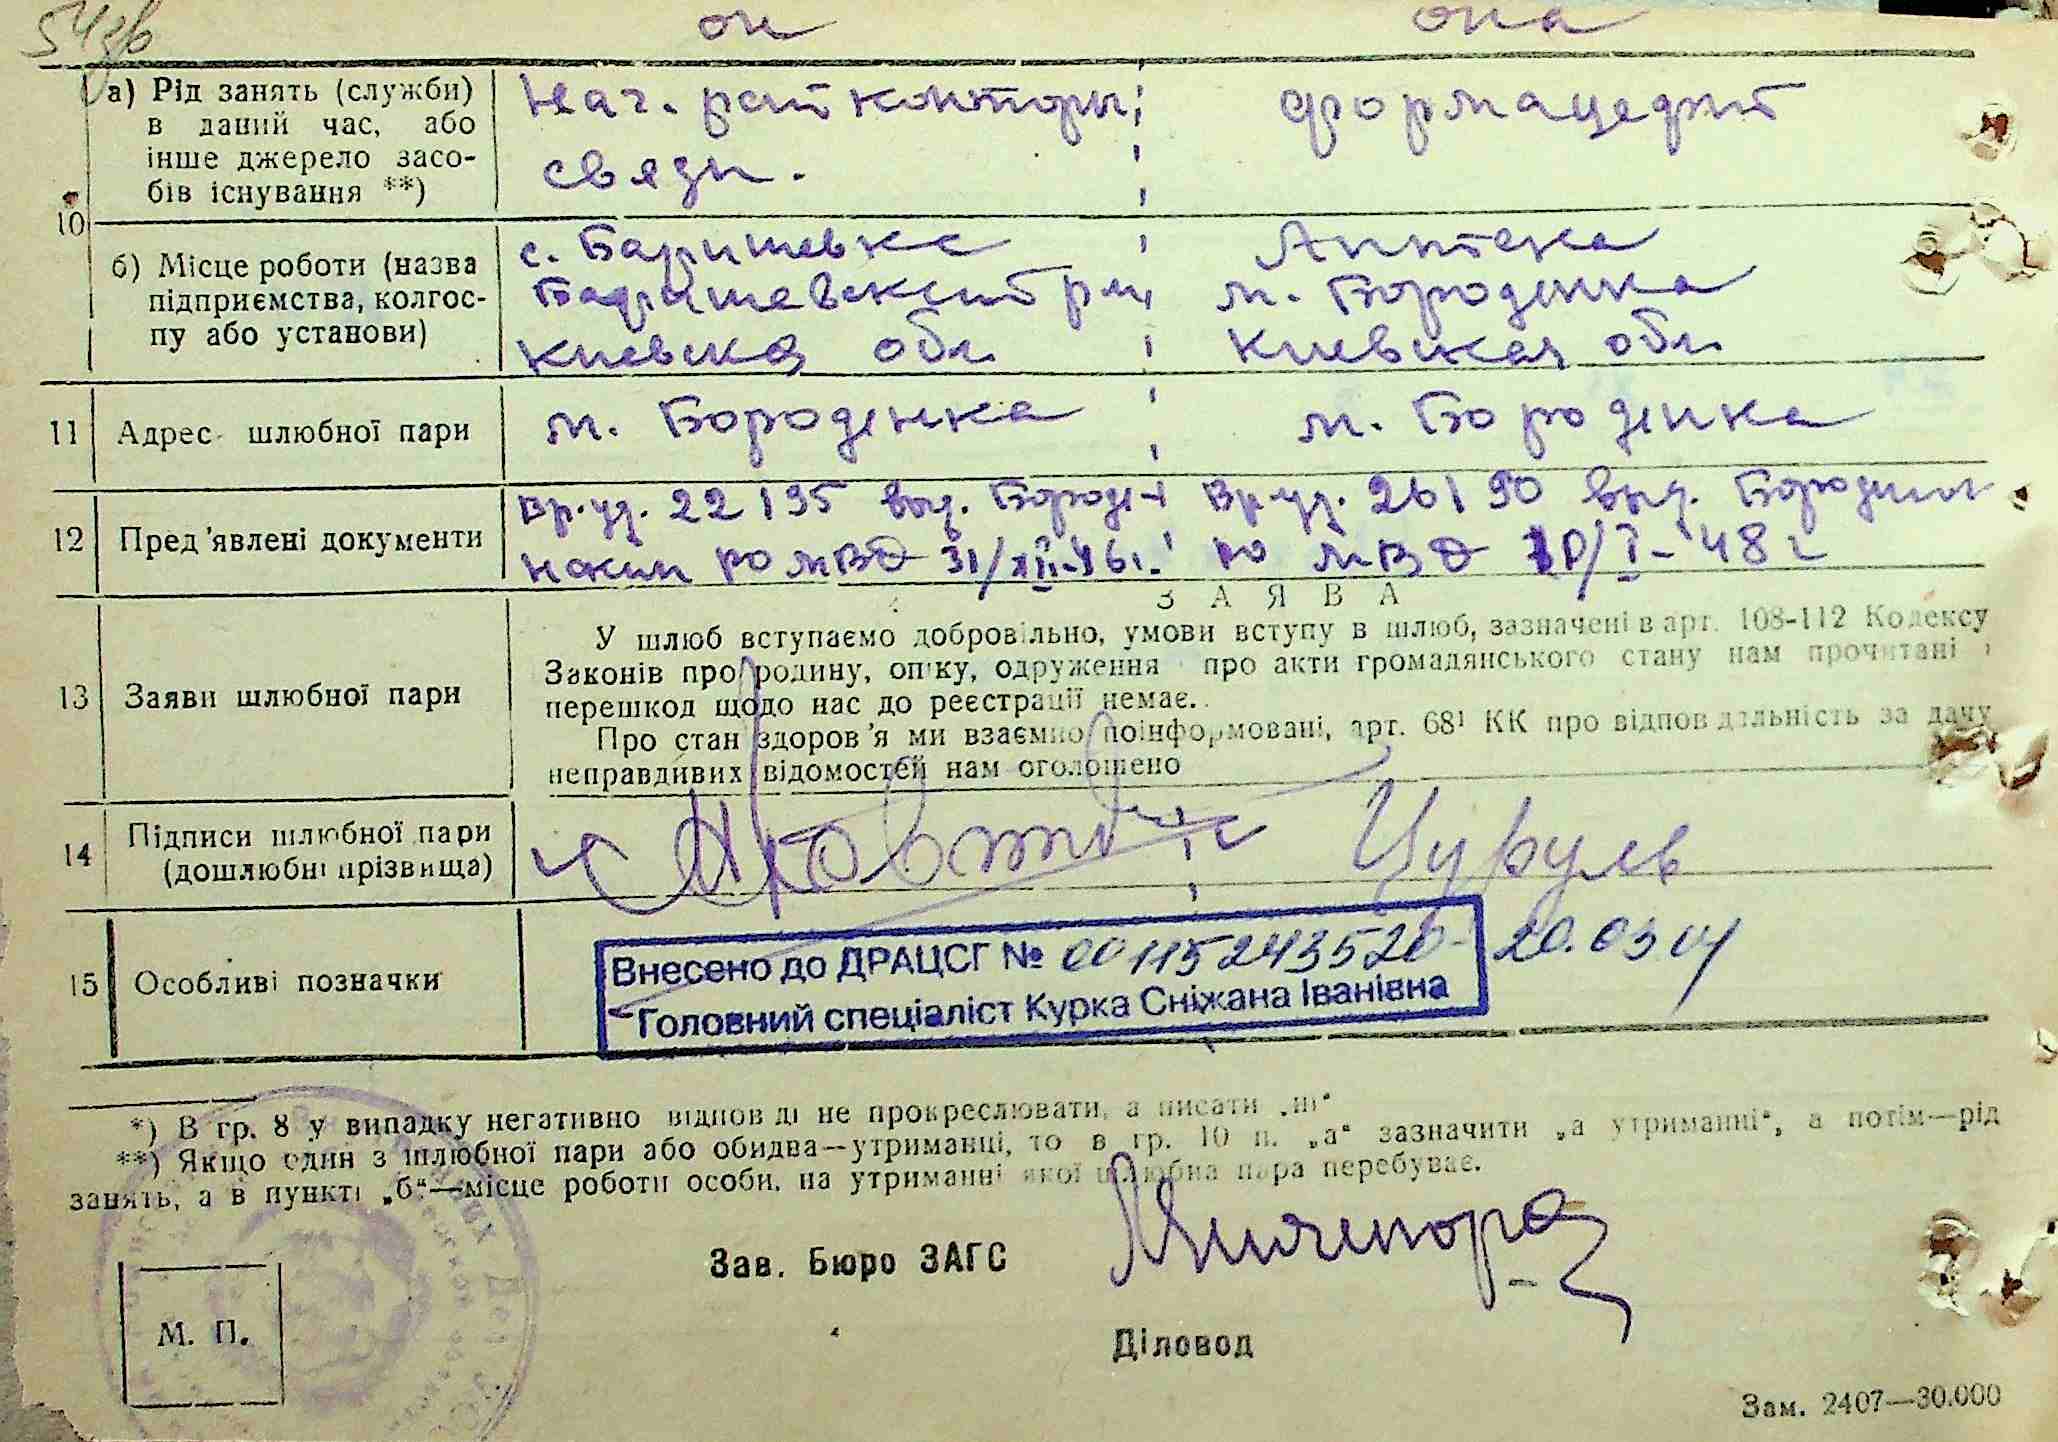 54зв
он она
а) Рід занять (служби) в даний час, або інше джерело засобів існування **)
Нач. рай конторы фармацевт
связи.
10
б) Місце роботи (назва підприємства, колгоспу або установи)
с. Баришевка Аптека
Баришевский р-н м. Бородянка
Киевска обл Киевская обл
11 Адрес шлюбної пари м. Бородянка м. Бородянка
12 Пред'явлені документи
Вр. уд. 22195 выд. Вр. уд. 26190 выд.
РО МВД 31/XII-46г. РО МВД /I-48 г
ЗАЯВА
13 Заяви шлюбної пари
У шлюб вступаємо добровільно, умови вступу в шлюб, зазначені в арт. 108-112 Кодексу
Законів про родину, опіку, одруження про акти громадянського стану нам прочитані і
перешкод щодо нас до реєстрації немає.
Про стан здоров'я ми взаємно поінформовані, арт. 68¹ КК про відповідальність за дачу
неправдивих відомостей нам оголошено
14 Підписи шлюбної пари (дошлюбні прізвища)
Цуруль
15 Особливі позначки
Внесено до ДРАЦСГ № 00115243520 20.03.07
Головний спеціаліст Курка Сніжана Іванівна
*) В гр. 8 у випадку негативно відповіді не прокреслювати, а писати „ні“
**) Якщо один з шлюбної пари або обидва—утриманці, то в гр. 10 п. „а“ зазначити „а утриманні“, а потім—рід
занять, а в пункті „б“—місце роботи особи, на утриманні якої шлюбна пара перебуває.
Зав. Бюро ЗАГС
М. П.
Діловод
Зам. 2407—30.000